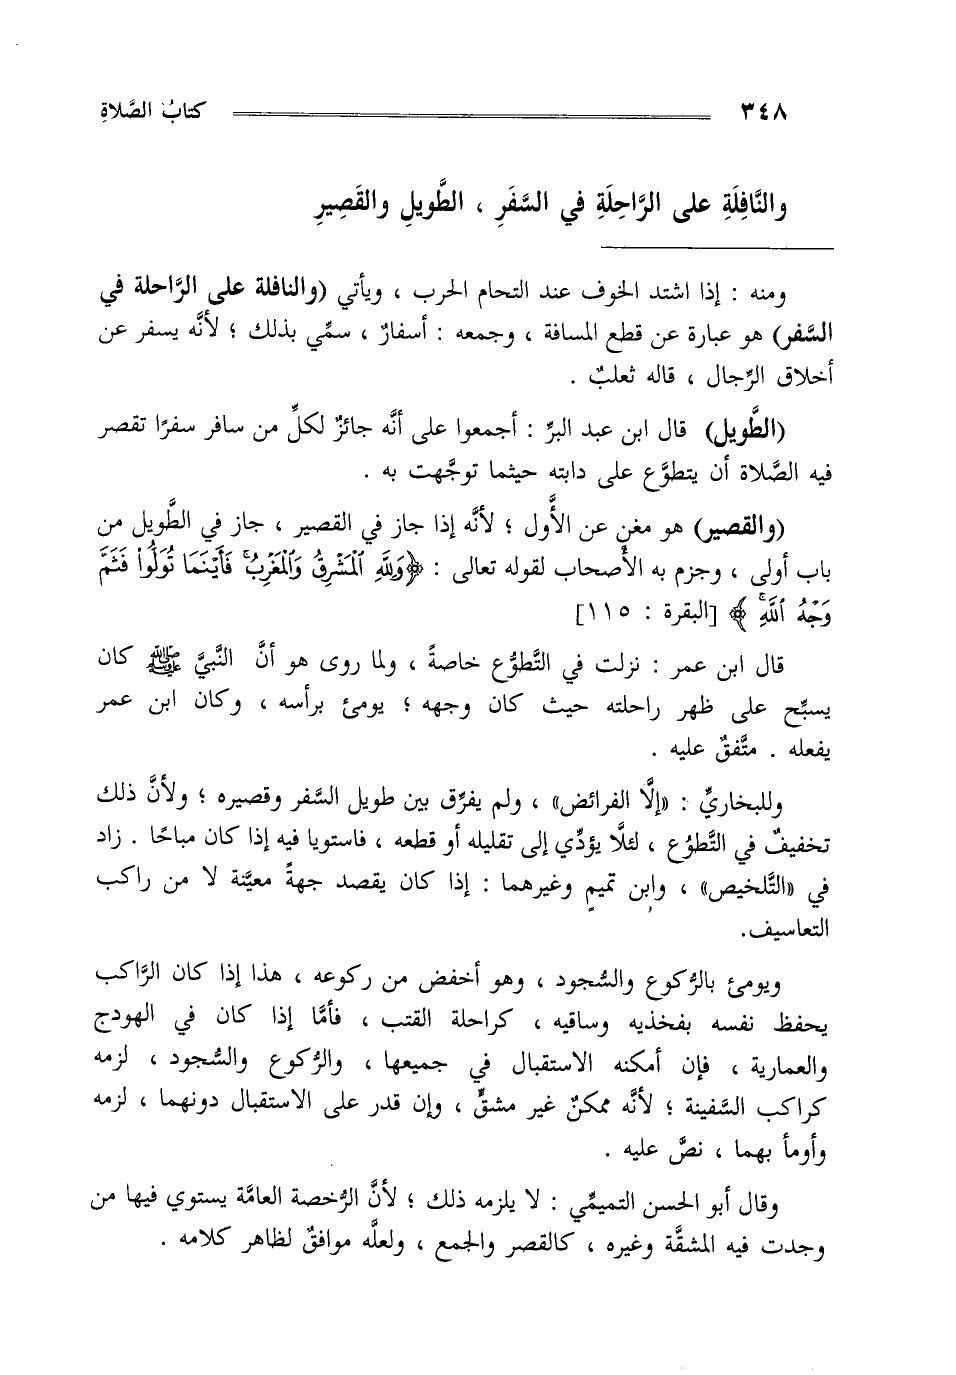 ٣٤٨ كتابُ الصَّلاةِ
والنَّافِلَةِ على الرَّاحِلَةِ في السَّفَرِ ، الطَّويلِ والقَصِيرِ
ومنه : إذا اشتد الخوف عند التحام الحرب ، ويأتي (والنافلة على الرَّاحلة في
السَّفر) هو عبارة عن قطع المسافة ، وجمعه : أسفارٌ ، سمِّي بذلك ؛ لأنَّه يسفر عن
أخلاق الرِّجال ، قاله ثعلبٌ .
(الطَّويل) قال ابن عبد البرِّ : أجمعوا على أنَّه جائزٌ لكلِّ من سافر سفرًا تقصر
فيه الصَّلاة أن يتطوَّع على دابته حيثما توجَّهت به .
(والقصير) هو مغنٍ عن الأَّول ؛ لأنَّه إذا جاز في القصير ، جاز في الطَّويل من
باب أولى ، وجزم به الأصحاب لقوله تعالى : ﴿وَلِلَّهِ ٱلْمَشْرِقُ وَٱلْمَغْرِبُ ۚ فَأَيْنَمَا تُوَلُّوا۟ فَثَمَّ
وَجْهُ ٱللَّهِ ۚ ﴾ [البقرة : ١١٥]
قال ابن عمر : نزلت في التَّطوُّع خاصةً ، ولما روى هو أنَّ النَّبيَّ ﷺ كان
يسبِّح على ظهر راحلته حيث كان وجهه ؛ يومئ برأسه ، وكان ابن عمر
يفعله . متَّفقٌ عليه .
وللبخاريِّ : «إلَّا الفرائض» ، ولم يفرِّق بين طويل السَّفر وقصيره ؛ ولأنَّ ذلك
تخفيفٌ في التَّطوُع ، لئلَّا يؤدِّي إلى تقليله أو قطعه ، فاستويا فيه إذا كان مباحًا . زاد
في «التَّلخيص» ، وابن تميمٍ وغيرهما : إذا كان يقصد جهةً معيَّنة لا من راكب
التعاسيف.
ويومئ بالرُّكوع والسُّجود ، وهو أخفض من ركوعه ، هذا إذا كان الرَّاكب
يحفظ نفسه بفخذيه وساقيه ، كراحلة القتب ، فأمَّا إذا كان في الهودج
والعمارية ، فإن أمكنه الاستقبال في جميعها ، والرُّكوع والسُّجود ، لزمه
كراكب السَّفينة ؛ لأنَّه ممكنٌ غير مشقٍّ ، وإن قدر على الاستقبال دونهما ، لزمه
وأومأ بهما ، نصَّ عليه .
وقال أبو الحسن التميمِّي : لا يلزمه ذلك ؛ لأنَّ الرُّخصة العامَّة يستوي فيها من
وجدت فيه المشقَّة وغيره ، كالقصر والجمع ، ولعلَّه موافقٌ لظاهر كلامه .